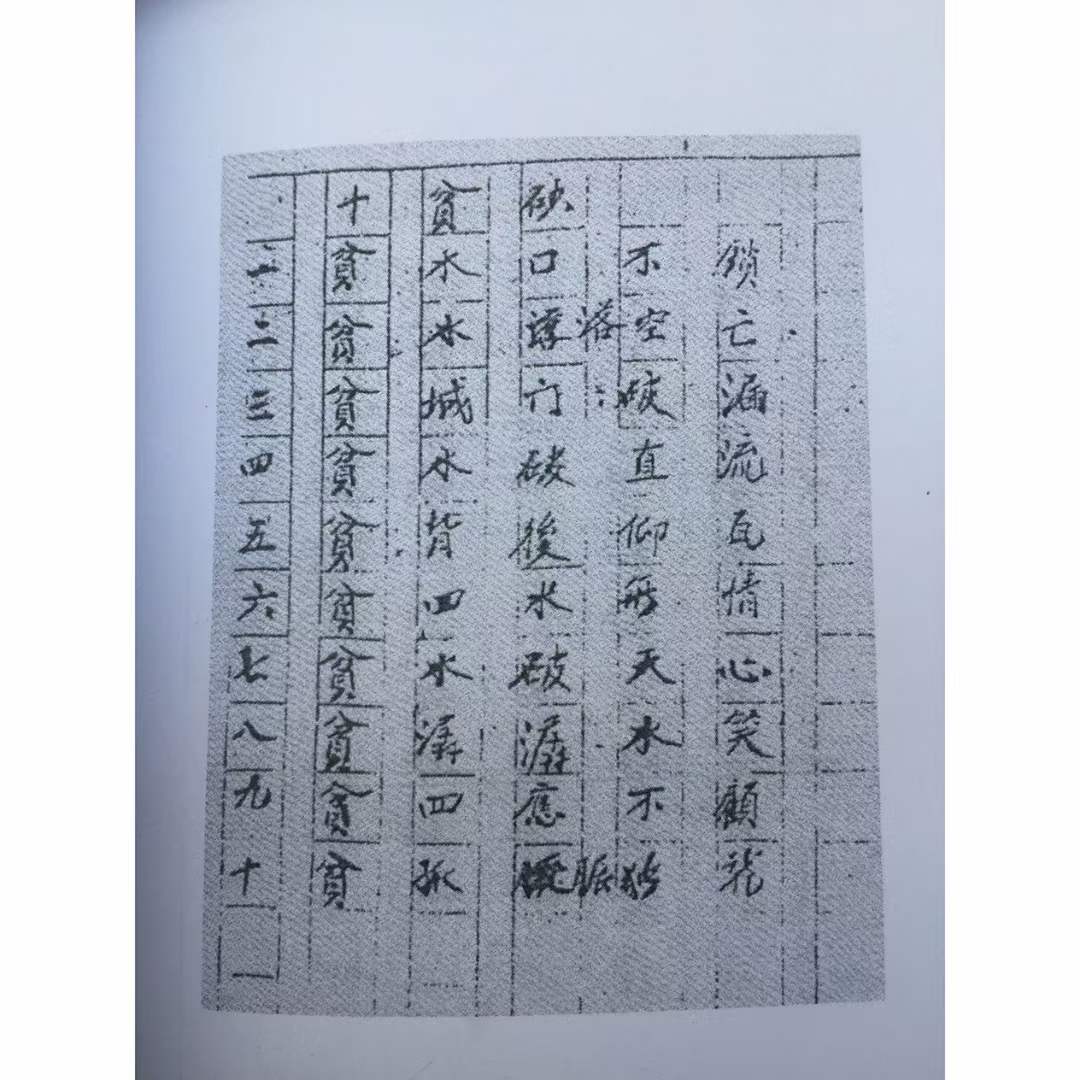 十貧砂
一貧水口不鎖
二貧水落空亡
三貧城门破漏
四貧水破直流
五貧背後仰瓦
六貧四水無情
七貧水破天心
八貧潺潺水笑
九貧四應不顧
十貧孤脈独龍